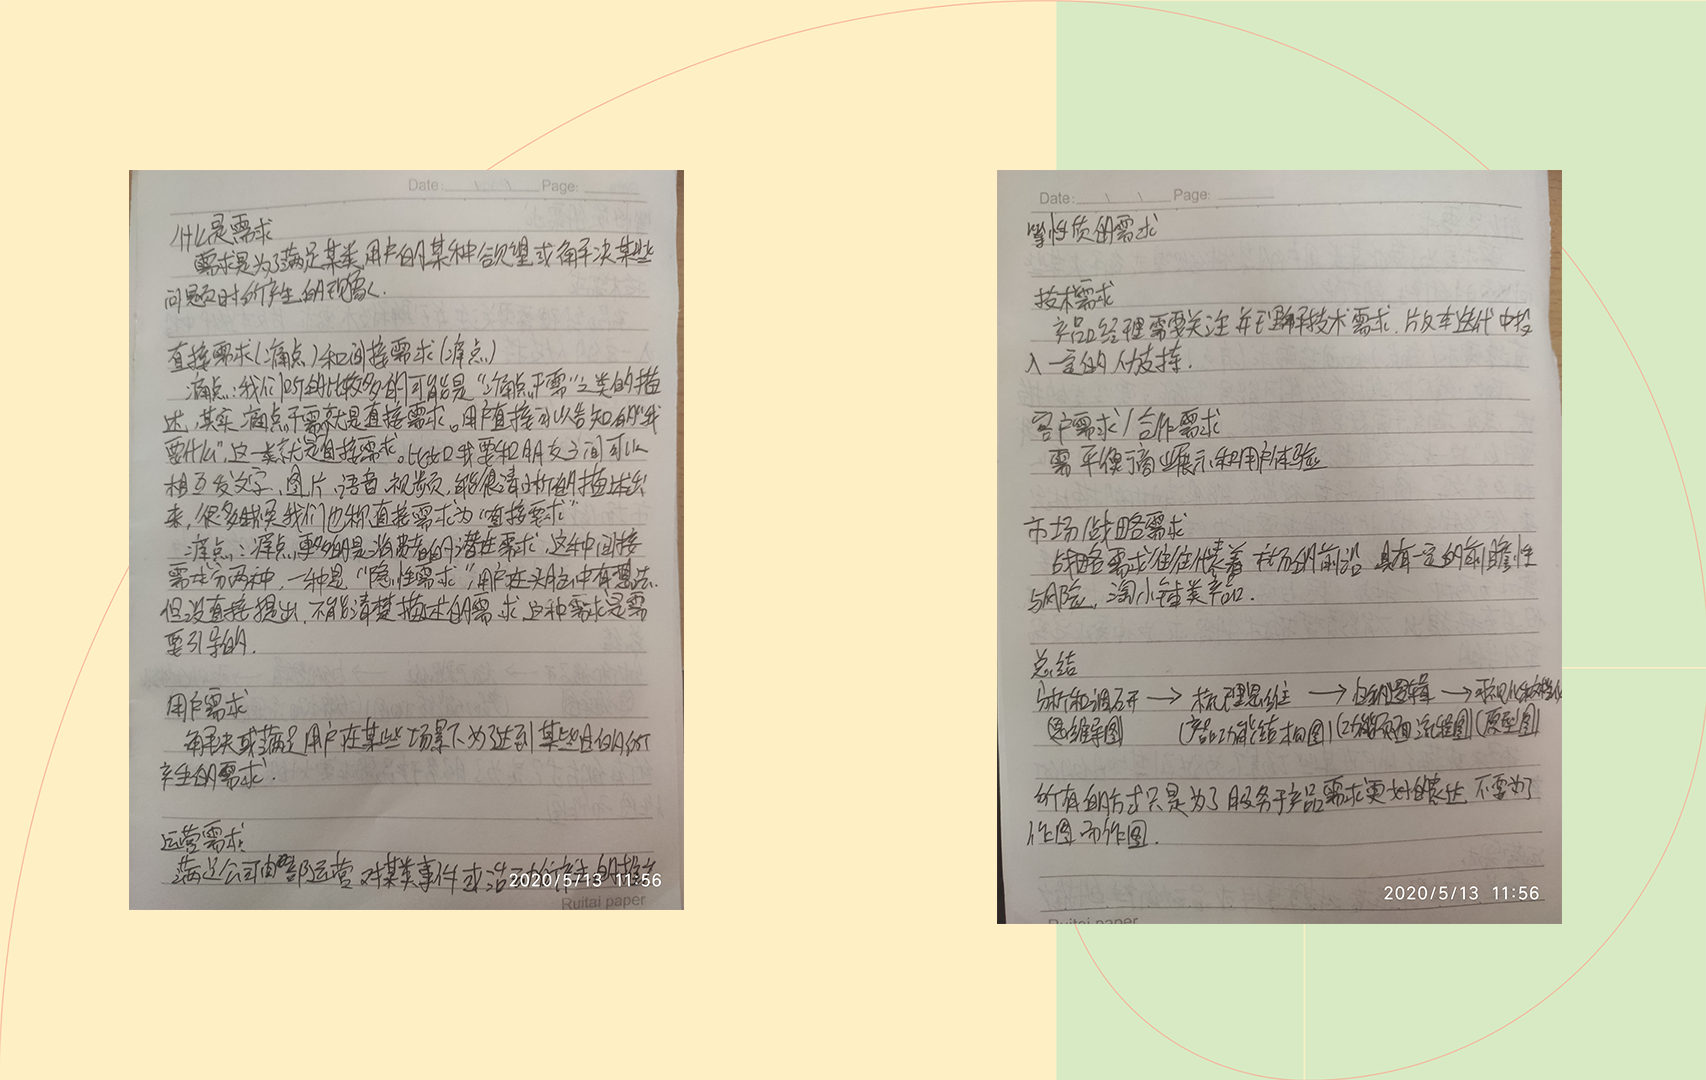 Date: Page:
什么是需求
需求是为了满足某类用户的某种欲望或解决某些
问题时所产生的现象.
直接需求(痛点)和间接需求(痒点)
痛点:我们听的比较多的可能是“痛点干需”之类的描
述,其实痛点干需就是直接需求。用户直接可以告知的“我
要什么”,这一类就是直接需求。比如我要和朋友之间可以
相互发文字、图片、语音、视频,能很清晰的描述出
来,很多时候我们也称直接需求为“直接要求”
痒点:痒点更多的是消费者的潜在需求,这种间接
需求分两种,一种是“隐性需求”,用户在头脑中有想法.
但没直接提出,不能清楚描述的需求,这种需求是需
要引导的.
用户需求
解决或满足用户在某些场景下为了达到某些目的所
产生的需求.
运营需求
满足公司内部运营对某类事件或活
2020/5/13 11:56
Ruitai paper
Date: Page:
性质的需求
技术需求
产品经理需要关注并理解技术需求,
入一定的
客户需求/合作需求
需平衡商业展示和用户体验
市场/战略需求
战略需求往往代表着市场的前沿,具有一定的前瞻性
与风险,
总结
分析和调研→梳理思维→内部逻辑→
(思维导图) (产品功能结构图)(功能页面流程图)(原型图)
所有的方式只是为了服务于产品需求更好的表达,不要为了
作图而作图.
2020/5/13 11:56
Ruitai paper